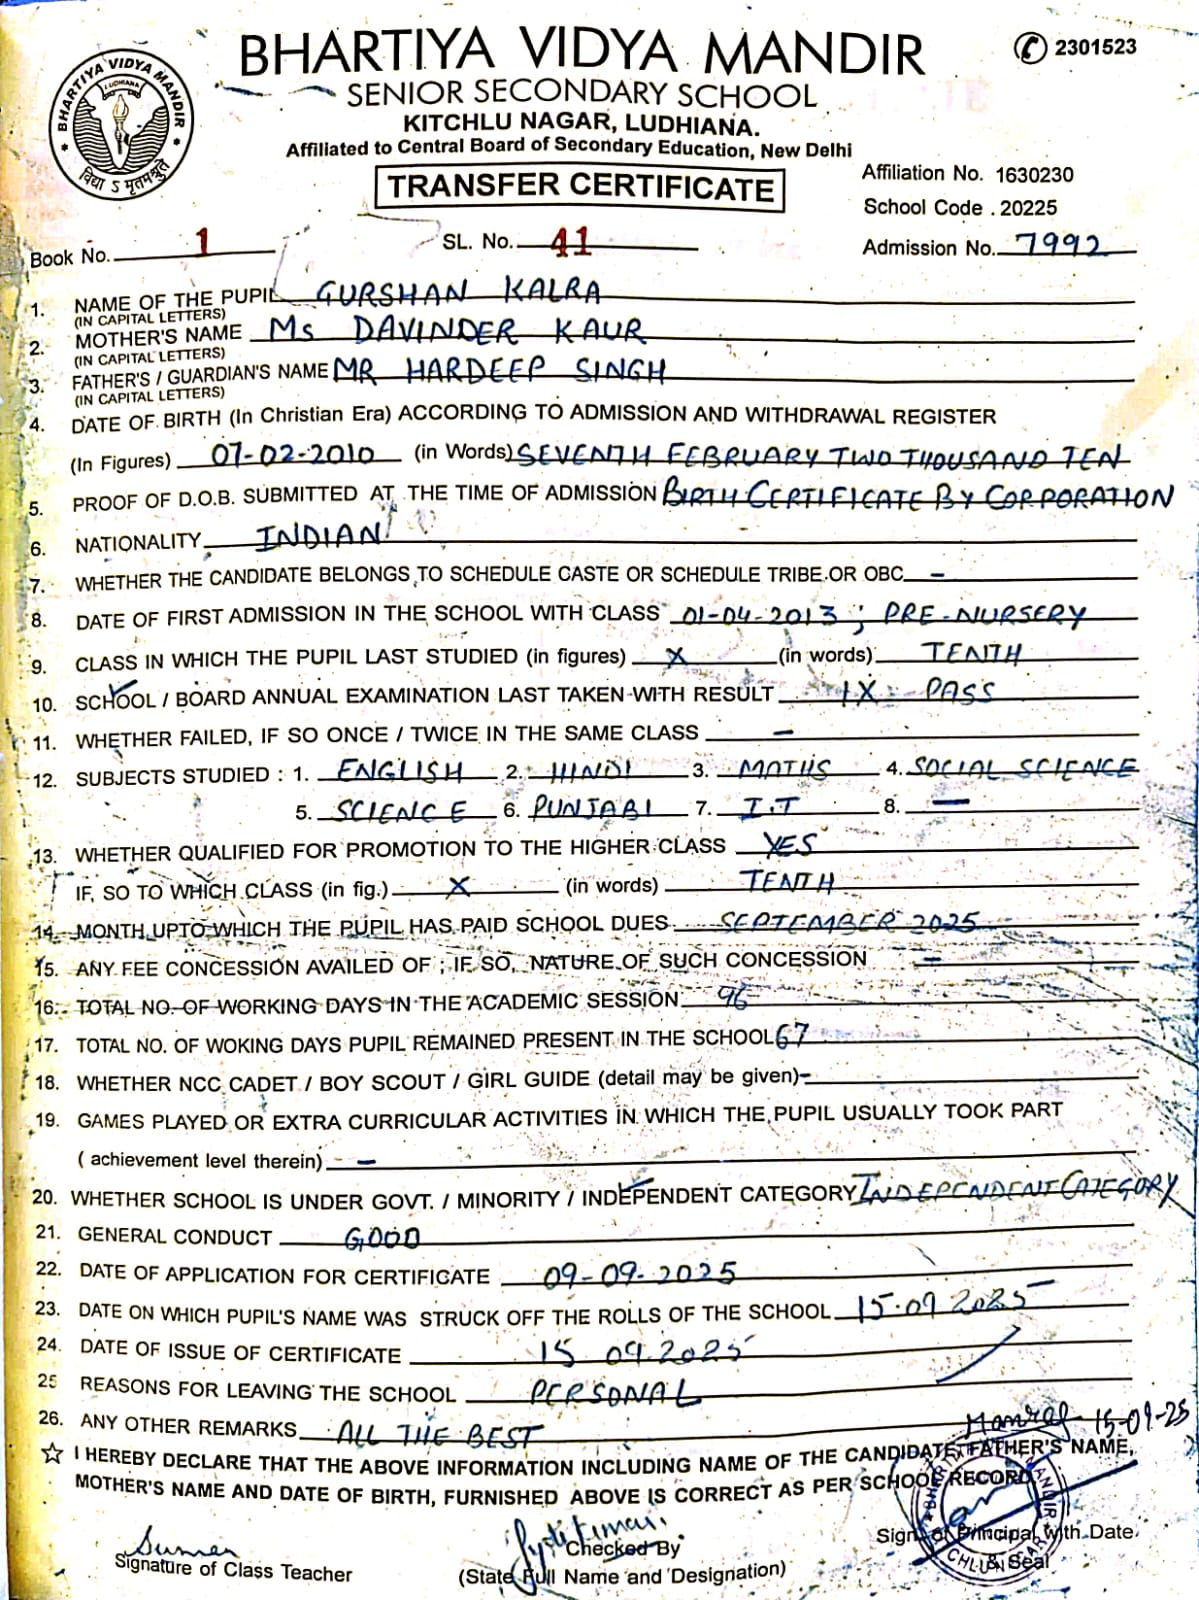 BHARTIYA VIDYA MANDIR
2301523
SENIOR SECONDARY SCHOOL
KITCHLU NAGAR, LUDHIANA.
Affiliated to Central Board of Secondary Education, New Delhi
BHARTIYA VIDYA MANDIR
LUDHIANA
विद्या ऽ मृतमश्नुते
TRANSFER CERTIFICATE
Affiliation No. 1630230
School Code . 20225
Book No. 1 SL. No. 41 Admission No. 7992
1. NAME OF THE PUPIL GURSHAN KALRA
(IN CAPITAL LETTERS)
2. MOTHER'S NAME Ms DAVINDER KAUR
(IN CAPITAL LETTERS)
3. FATHER'S / GUARDIAN'S NAME MR HARDEEP SINGH
(IN CAPITAL LETTERS)
4. DATE OF BIRTH (In Christian Era) ACCORDING TO ADMISSION AND WITHDRAWAL REGISTER
(In Figures) 07-02-2010 (in Words) SEVENTH FEBRUARY TWO THOUSAND TEN
5. PROOF OF D.O.B. SUBMITTED AT THE TIME OF ADMISSION BIRTH CERTIFICATE BY CORPORATION
6. NATIONALITY INDIAN
7. WHETHER THE CANDIDATE BELONGS TO SCHEDULE CASTE OR SCHEDULE TRIBE OR OBC -
8. DATE OF FIRST ADMISSION IN THE SCHOOL WITH CLASS 01-04-2013 ; PRE-NURSERY
9. CLASS IN WHICH THE PUPIL LAST STUDIED (in figures) X (in words) TENTH
10. SCHOOL / BOARD ANNUAL EXAMINATION LAST TAKEN WITH RESULT IX PASS
11. WHETHER FAILED, IF SO ONCE / TWICE IN THE SAME CLASS -
12. SUBJECTS STUDIED : 1. ENGLISH 2. HINDI 3. MATHS 4. SOCIAL SCIENCE
5. SCIENCE 6. PUNJABI 7. I.T 8. -
13. WHETHER QUALIFIED FOR PROMOTION TO THE HIGHER CLASS YES
IF, SO TO WHICH CLASS (in fig.) X (in words) TENTH
14. MONTH UPTO WHICH THE PUPIL HAS PAID SCHOOL DUES SEPTEMBER 2025
15. ANY FEE CONCESSION AVAILED OF ; IF SO, NATURE OF SUCH CONCESSION -
16. TOTAL NO. OF WORKING DAYS IN THE ACADEMIC SESSION 96
17. TOTAL NO. OF WOKING DAYS PUPIL REMAINED PRESENT IN THE SCHOOL 67
18. WHETHER NCC CADET / BOY SCOUT / GIRL GUIDE (detail may be given) -
19. GAMES PLAYED OR EXTRA CURRICULAR ACTIVITIES IN WHICH THE PUPIL USUALLY TOOK PART
( achievement level therein) -
20. WHETHER SCHOOL IS UNDER GOVT. / MINORITY / INDEPENDENT CATEGORY INDEPENDENT CATEGORY
21. GENERAL CONDUCT GOOD
22. DATE OF APPLICATION FOR CERTIFICATE 09-09-2025
23. DATE ON WHICH PUPIL'S NAME WAS STRUCK OFF THE ROLLS OF THE SCHOOL 15.09 2025
24. DATE OF ISSUE OF CERTIFICATE 15 09.2025
25 REASONS FOR LEAVING THE SCHOOL PERSONAL
26. ANY OTHER REMARKS ALL THE BEST
15-09-25
☆ I HEREBY DECLARE THAT THE ABOVE INFORMATION INCLUDING NAME OF THE CANDIDATE, FATHER'S NAME,
MOTHER'S NAME AND DATE OF BIRTH, FURNISHED ABOVE IS CORRECT AS PER SCHOOL RECORD
Suman
Signature of Class Teacher
Checked By
(State Full Name and Designation)
Sign. of Principal with Date
& Seal